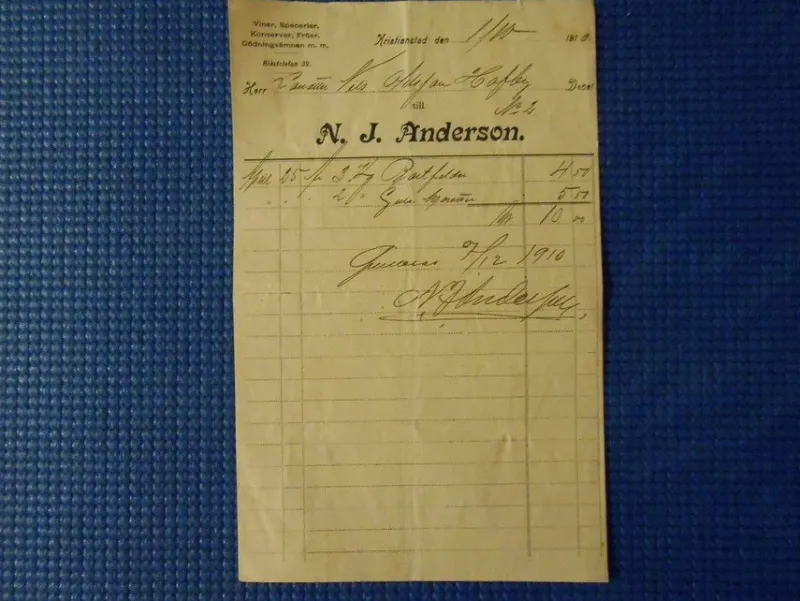 Viner, Specerier,
Konserver, Fröer,
Gödningsämnen m. m.
Rikstelefon 39.
Kristianstad den 1/10 1910
Herr Nils Debet
till No 2
N. J. Anderson.
25 3 Kg 4 50
2 5 50
Kr. 10 00
7/12 1910
N J Anderson